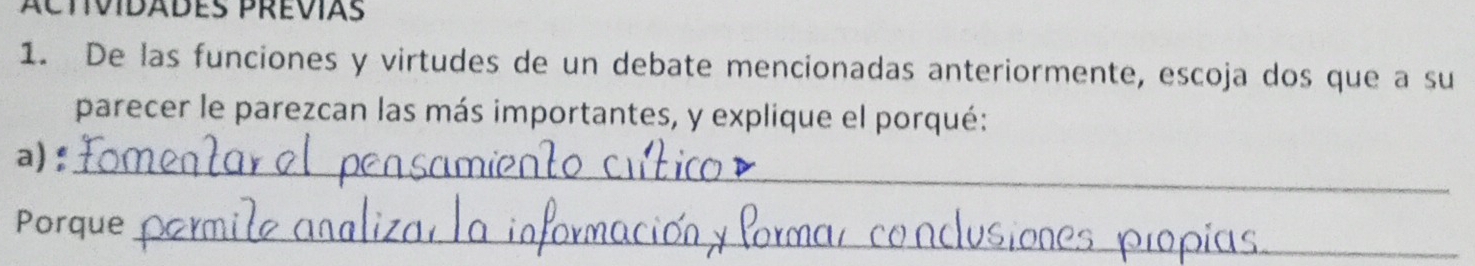 ACTIVIDADES PREVIAS
1. De las funciones y virtudes de un debate mencionadas anteriormente, escoja dos que a su
parecer le parezcan las más importantes, y explique el porqué:
a) : Fomentar el pensamiento crítico
Porque permite analizar la información y formar conclusiones propias.